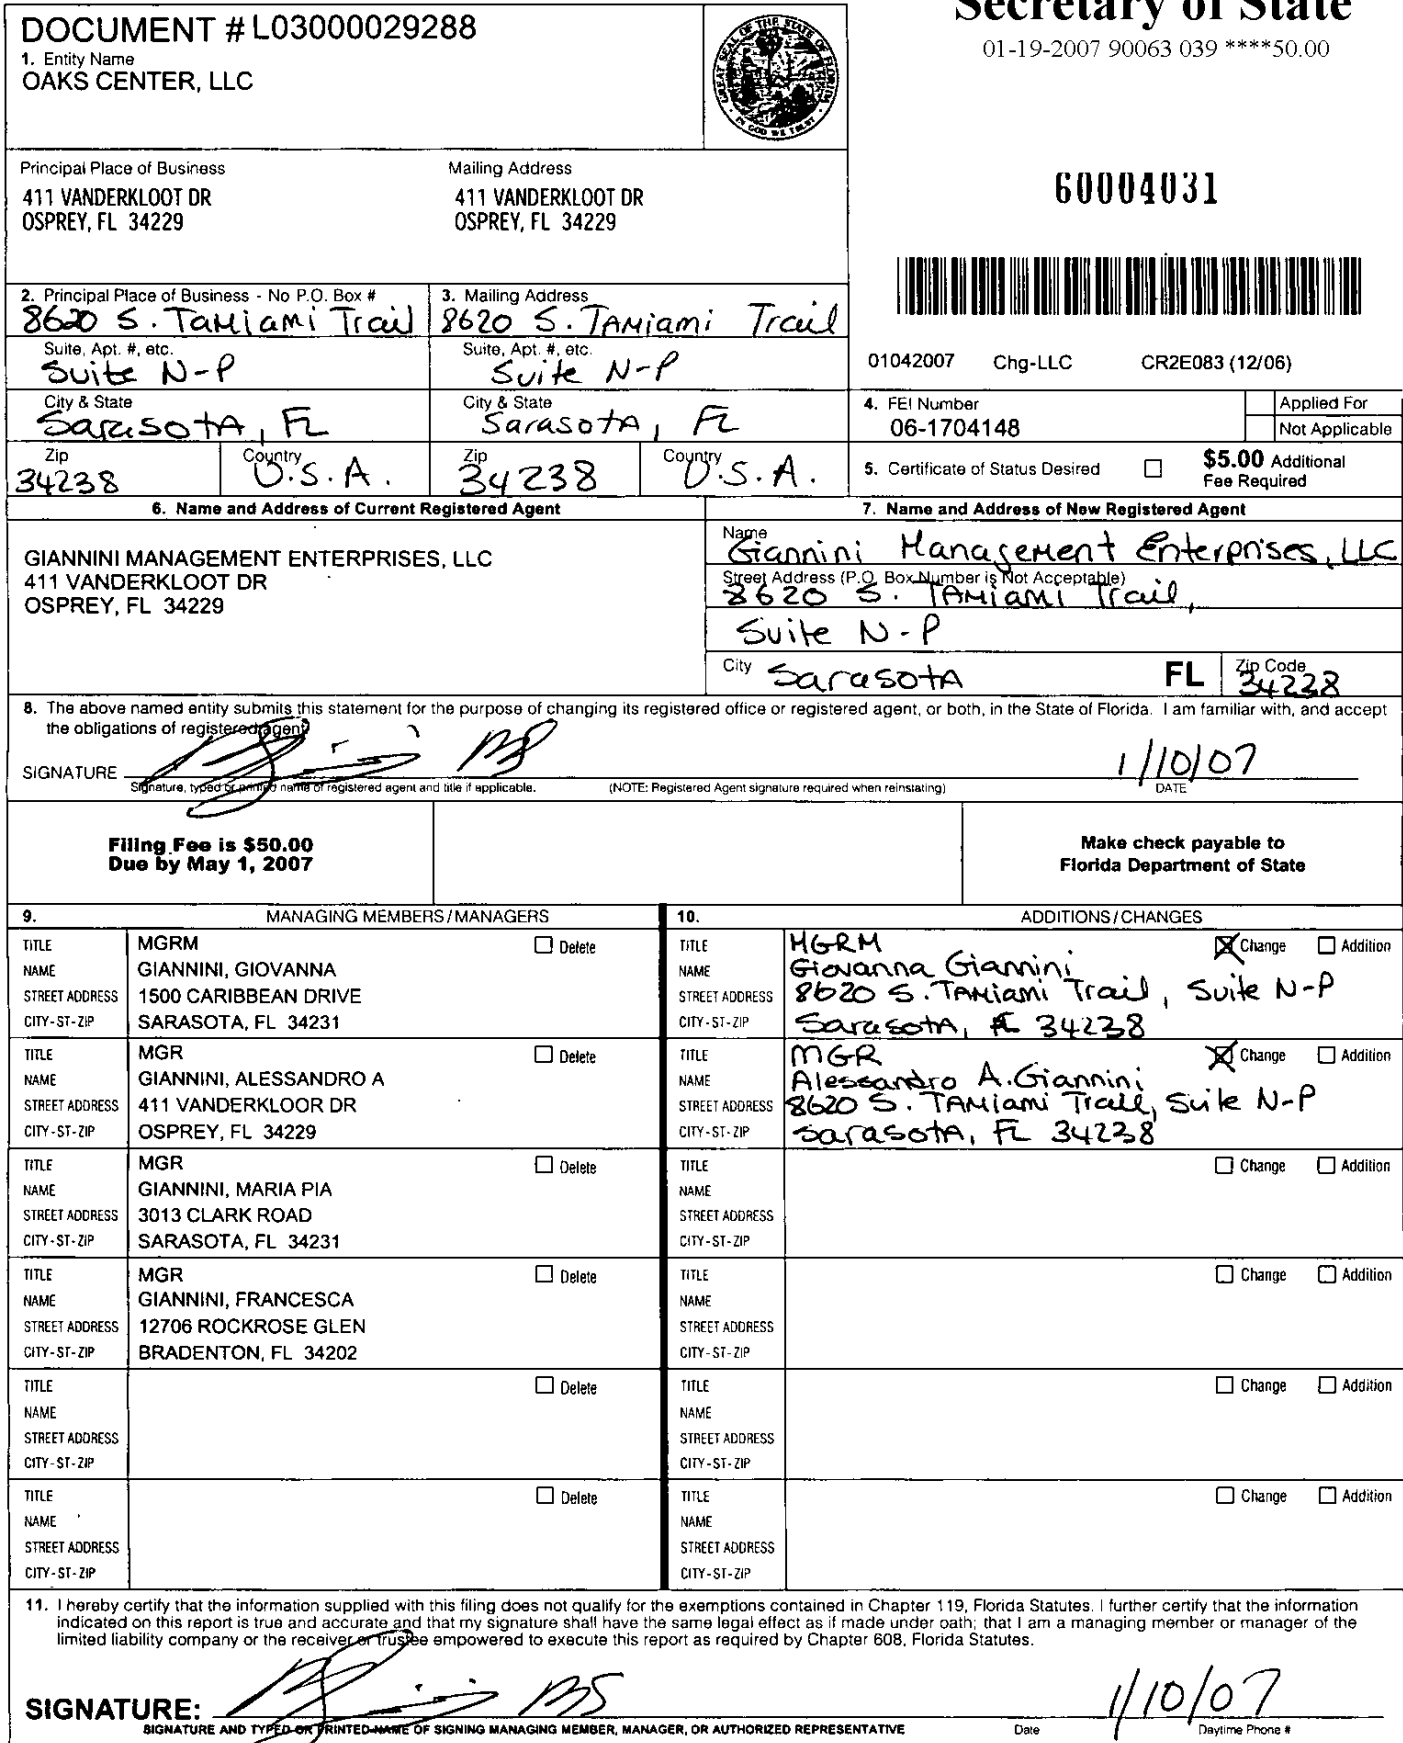 Secretary of State
01-19-2007 90063 039 ****50.00
DOCUMENT # L03000029288
1. Entity Name
OAKS CENTER, LLC
GREAT SEAL OF THE STATE OF FLORIDA
IN GOD WE TRUST
Principal Place of Business
411 VANDERKLOOT DR
OSPREY, FL 34229
Mailing Address
411 VANDERKLOOT DR
OSPREY, FL 34229
60004031
2. Principal Place of Business - No P.O. Box #
8620 S. TaMiami Trail
Suite, Apt. #, etc.
Suite N-P
City & State
Sarasota, FL
Zip
34238
Country
U.S.A.
3. Mailing Address
8620 S. TAMiami Trail
Suite, Apt. #, etc.
Suite N-P
City & State
Sarasota, FL
Zip
34238
Country
U.S.A.
01042007 Chg-LLC CR2E083 (12/06)
4. FEI Number
06-1704148
Applied For
Not Applicable
5. Certificate of Status Desired
$5.00 Additional
Fee Required
6. Name and Address of Current Registered Agent
GIANNINI MANAGEMENT ENTERPRISES, LLC
411 VANDERKLOOT DR
OSPREY, FL 34229
7. Name and Address of New Registered Agent
Name
Giannini Management Enterprises, LLC
Street Address (P.O. Box Number is Not Acceptable)
8620 S. TAMiami Trail,
Suite N-P
City Sarasota FL Zip Code 34238
8. The above named entity submits this statement for the purpose of changing its registered office or registered agent, or both, in the State of Florida. I am familiar with, and accept
the obligations of registered agent
SIGNATURE
1/10/07
Signature, typed or printed name of registered agent and title if applicable. (NOTE: Registered Agent signature required when reinstating) DATE
Filing Fee is $50.00
Due by May 1, 2007
Make check payable to
Florida Department of State
9. MANAGING MEMBERS/MANAGERS
10. ADDITIONS/CHANGES
TITLE MGRM Delete
NAME GIANNINI, GIOVANNA
STREET ADDRESS 1500 CARIBBEAN DRIVE
CITY-ST-ZIP SARASOTA, FL 34231
TITLE MGRM Change Addition
NAME Giovanna Giannini
STREET ADDRESS 8620 S. TAMiami Trail, Suite N-P
CITY-ST-ZIP Sarasota, FL 34238
TITLE MGR Delete
NAME GIANNINI, ALESSANDRO A
STREET ADDRESS 411 VANDERKLOOR DR
CITY-ST-ZIP OSPREY, FL 34229
TITLE MGR Change Addition
NAME Alessandro A. Giannini
STREET ADDRESS 8620 S. TAMiami Trail, Suite N-P
CITY-ST-ZIP Sarasota, FL 34238
TITLE MGR Delete
NAME GIANNINI, MARIA PIA
STREET ADDRESS 3013 CLARK ROAD
CITY-ST-ZIP SARASOTA, FL 34231
TITLE Change Addition
NAME
STREET ADDRESS
CITY-ST-ZIP
TITLE MGR Delete
NAME GIANNINI, FRANCESCA
STREET ADDRESS 12706 ROCKROSE GLEN
CITY-ST-ZIP BRADENTON, FL 34202
TITLE Change Addition
NAME
STREET ADDRESS
CITY-ST-ZIP
TITLE Delete
NAME
STREET ADDRESS
CITY-ST-ZIP
TITLE Change Addition
NAME
STREET ADDRESS
CITY-ST-ZIP
TITLE Delete
NAME
STREET ADDRESS
CITY-ST-ZIP
TITLE Change Addition
NAME
STREET ADDRESS
CITY-ST-ZIP
11. I hereby certify that the information supplied with this filing does not qualify for the exemptions contained in Chapter 119, Florida Statutes. I further certify that the information
indicated on this report is true and accurate and that my signature shall have the same legal effect as if made under oath; that I am a managing member or manager of the
limited liability company or the receiver or trustee empowered to execute this report as required by Chapter 608, Florida Statutes.
SIGNATURE:
1/10/07
SIGNATURE AND TYPED OR PRINTED NAME OF SIGNING MANAGING MEMBER, MANAGER, OR AUTHORIZED REPRESENTATIVE Date Daytime Phone #